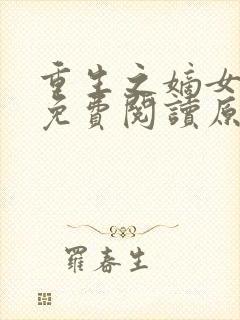 重生之嫡女
免費閱讀原
羅春生